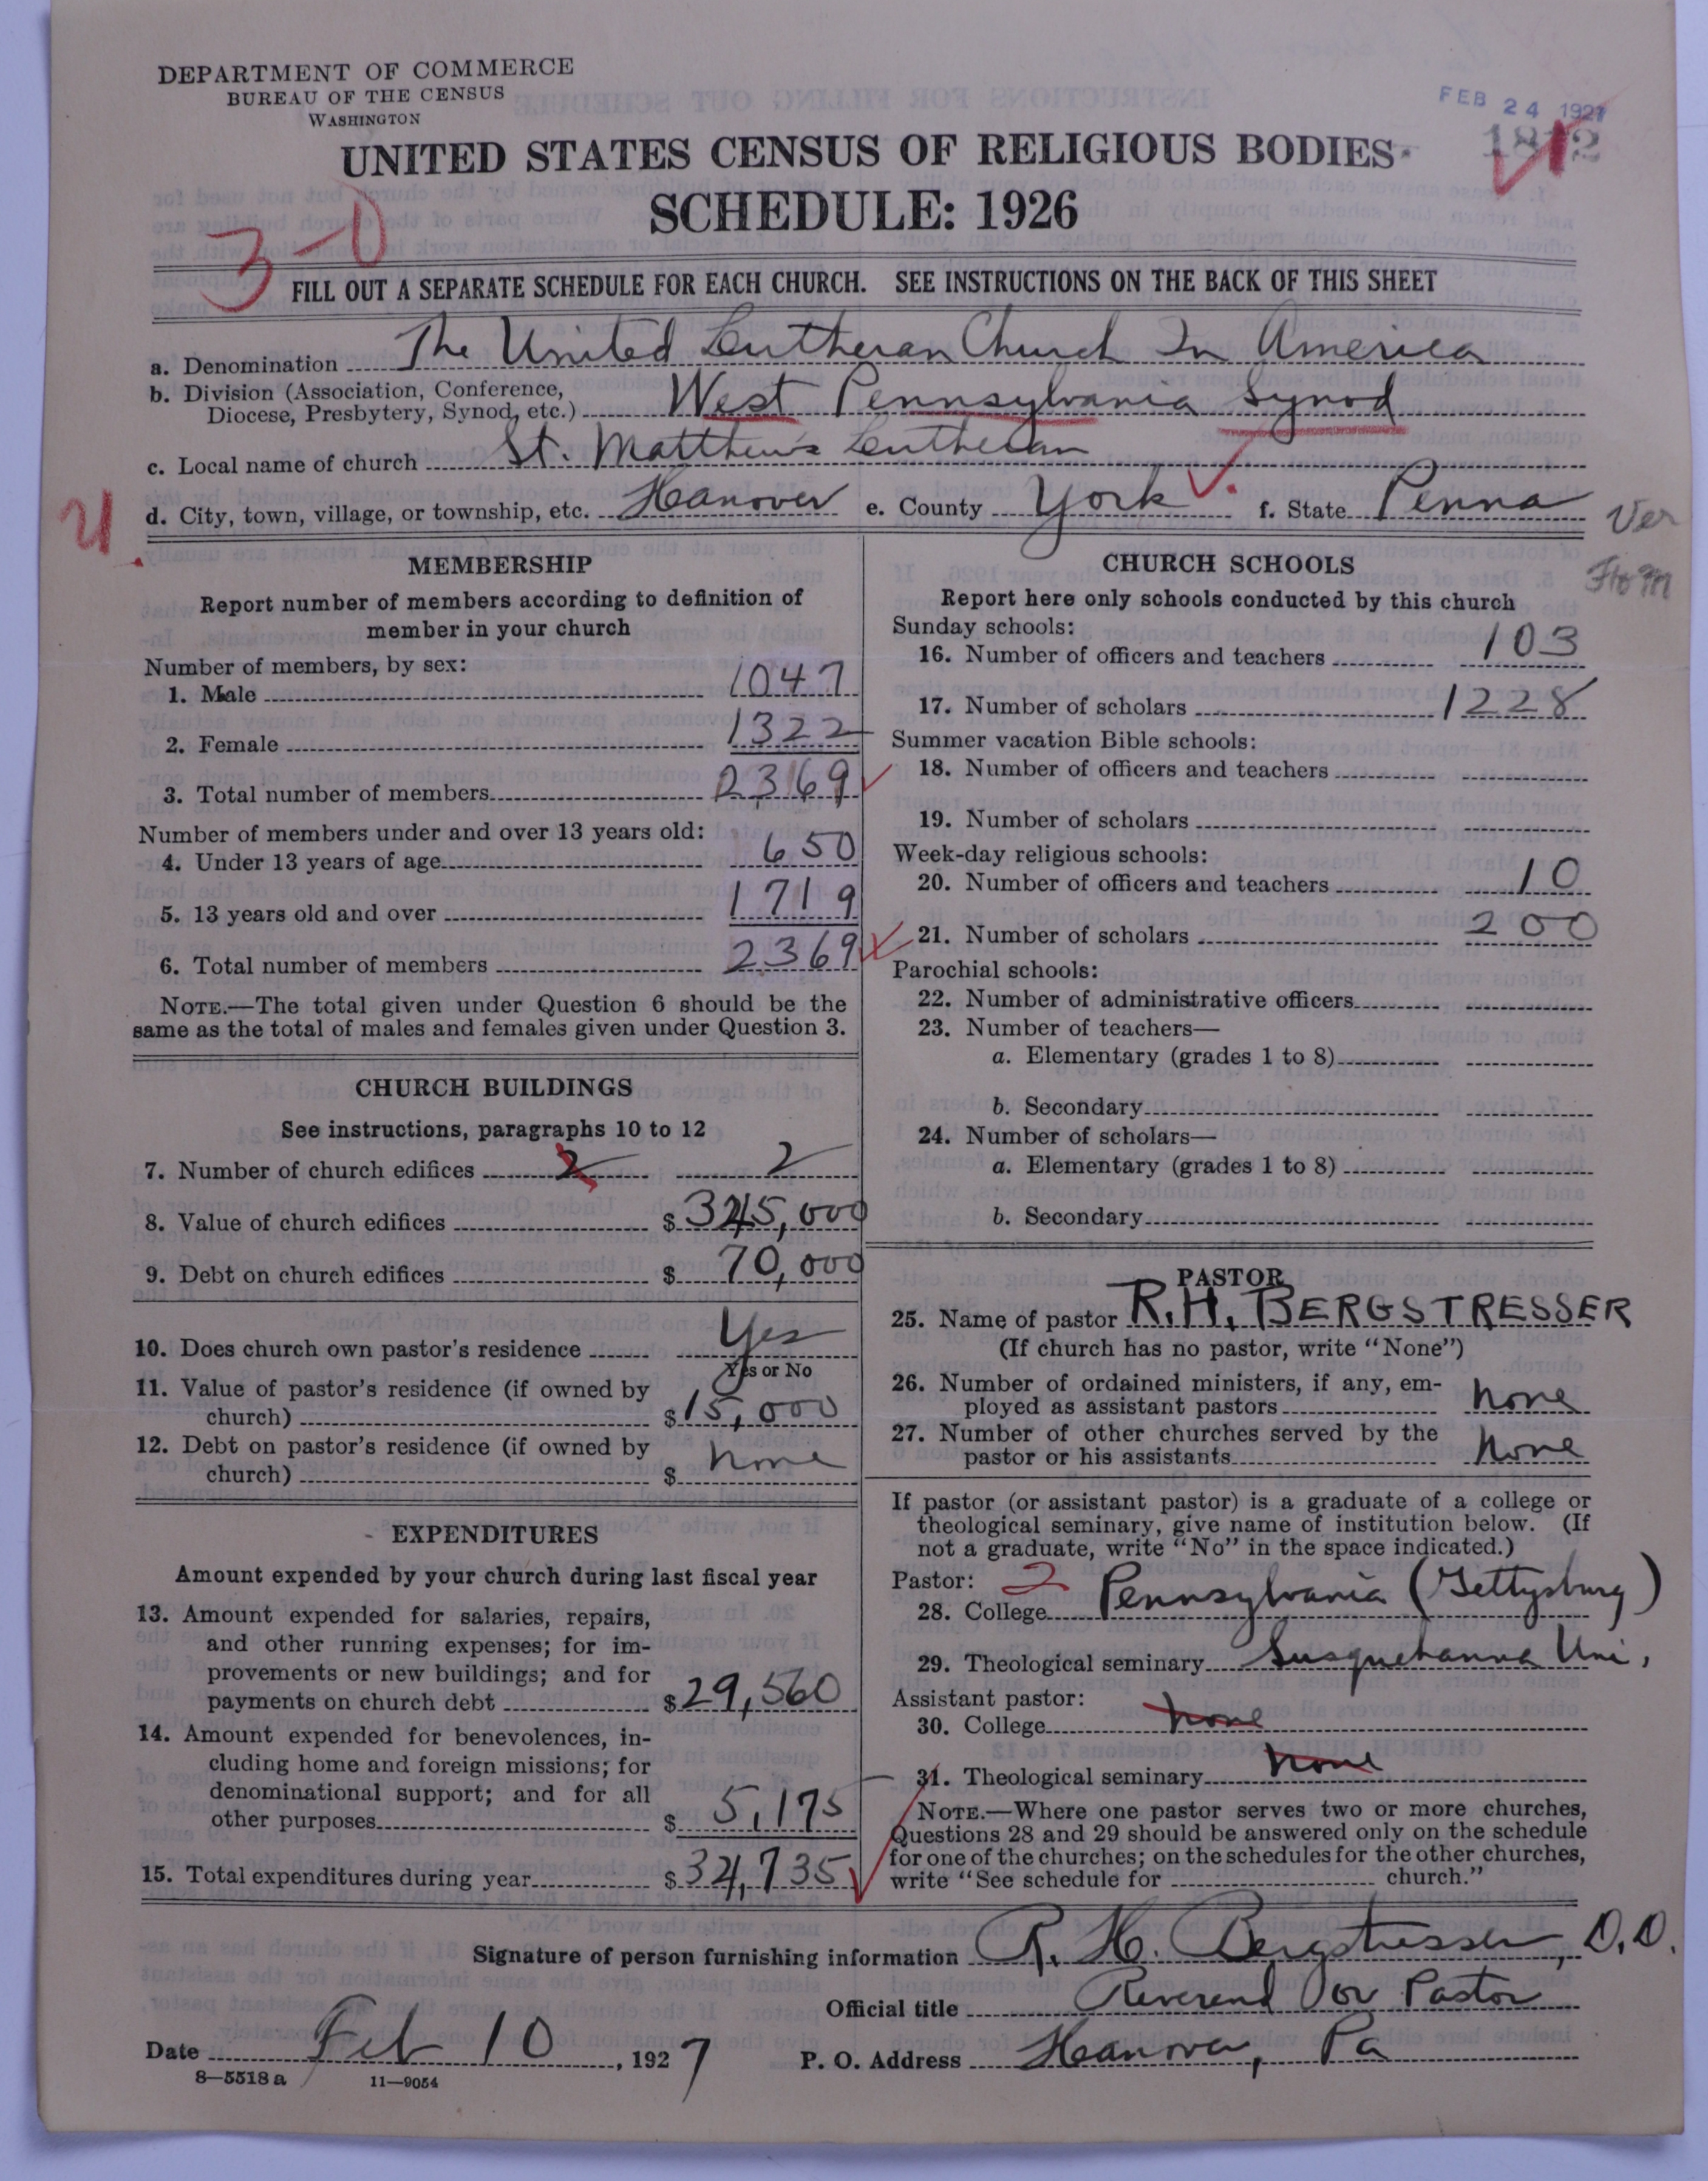 DEPARTMENT OF COMMERCE
BUREAU OF THE CENSUS
WASHINGTON
FEB 24 1927
UNITED STATES CENSUS OF RELIGIOUS BODIES
SCHEDULE: 1926
3-0
FILL OUT A SEPARATE SCHEDULE FOR EACH CHURCH. SEE INSTRUCTIONS ON THE BACK OF THIS SHEET
a. Denomination The United Lutheran Church In America
b. Division (Association, Conference,
Diocese, Presbytery, Synod, etc.) West Pennsylvania Synod
c. Local name of church St. Matthew's Lutheran
d. City, town, village, or township, etc. Hanover e. County York f. State Penna
Ver
MEMBERSHIP
Report number of members according to definition of
member in your church
Number of members, by sex:
1. Male 1047
2. Female 1322
3. Total number of members 2369
Number of members under and over 13 years old:
4. Under 13 years of age 650
5. 13 years old and over 1719
6. Total number of members 2369
NOTE.—The total given under Question 6 should be the
same as the total of males and females given under Question 3.
CHURCH BUILDINGS
See instructions, paragraphs 10 to 12
7. Number of church edifices 2 2
8. Value of church edifices $ 345,000
9. Debt on church edifices $ 70,000
10. Does church own pastor's residence Yes
Yes or No
11. Value of pastor's residence (if owned by
church) $ 15,000
12. Debt on pastor's residence (if owned by
church) $ none
EXPENDITURES
Amount expended by your church during last fiscal year
13. Amount expended for salaries, repairs,
and other running expenses; for im-
provements or new buildings; and for
payments on church debt $ 29,560
14. Amount expended for benevolences, in-
cluding home and foreign missions; for
denominational support; and for all
other purposes $ 5,175
15. Total expenditures during year $ 34,735
CHURCH SCHOOLS
Report here only schools conducted by this church
Sunday schools:
16. Number of officers and teachers 103
17. Number of scholars 1228
Summer vacation Bible schools:
18. Number of officers and teachers
19. Number of scholars
Week-day religious schools:
20. Number of officers and teachers 10
21. Number of scholars 200
Parochial schools:
22. Number of administrative officers
23. Number of teachers—
a. Elementary (grades 1 to 8)
b. Secondary
24. Number of scholars—
a. Elementary (grades 1 to 8)
b. Secondary
PASTOR
25. Name of pastor R.H. BERGSTRESSER
(If church has no pastor, write "None")
26. Number of ordained ministers, if any, em-
ployed as assistant pastors none
27. Number of other churches served by the
pastor or his assistants none
If pastor (or assistant pastor) is a graduate of a college or
theological seminary, give name of institution below. (If
not a graduate, write "No" in the space indicated.)
Pastor: 2
28. College Pennsylvania (Gettysburg)
29. Theological seminary Susquehanna Uni,
Assistant pastor:
30. College none
31. Theological seminary none
NOTE.—Where one pastor serves two or more churches,
Questions 28 and 29 should be answered only on the schedule
for one of the churches; on the schedules for the other churches,
write "See schedule for church."
Signature of person furnishing information R. H. Bergstresser, D.D.
Official title Reverend or Pastor
Date Feb 10, 1927 P. O. Address Hanover, Pa
8—5518a 11—9054